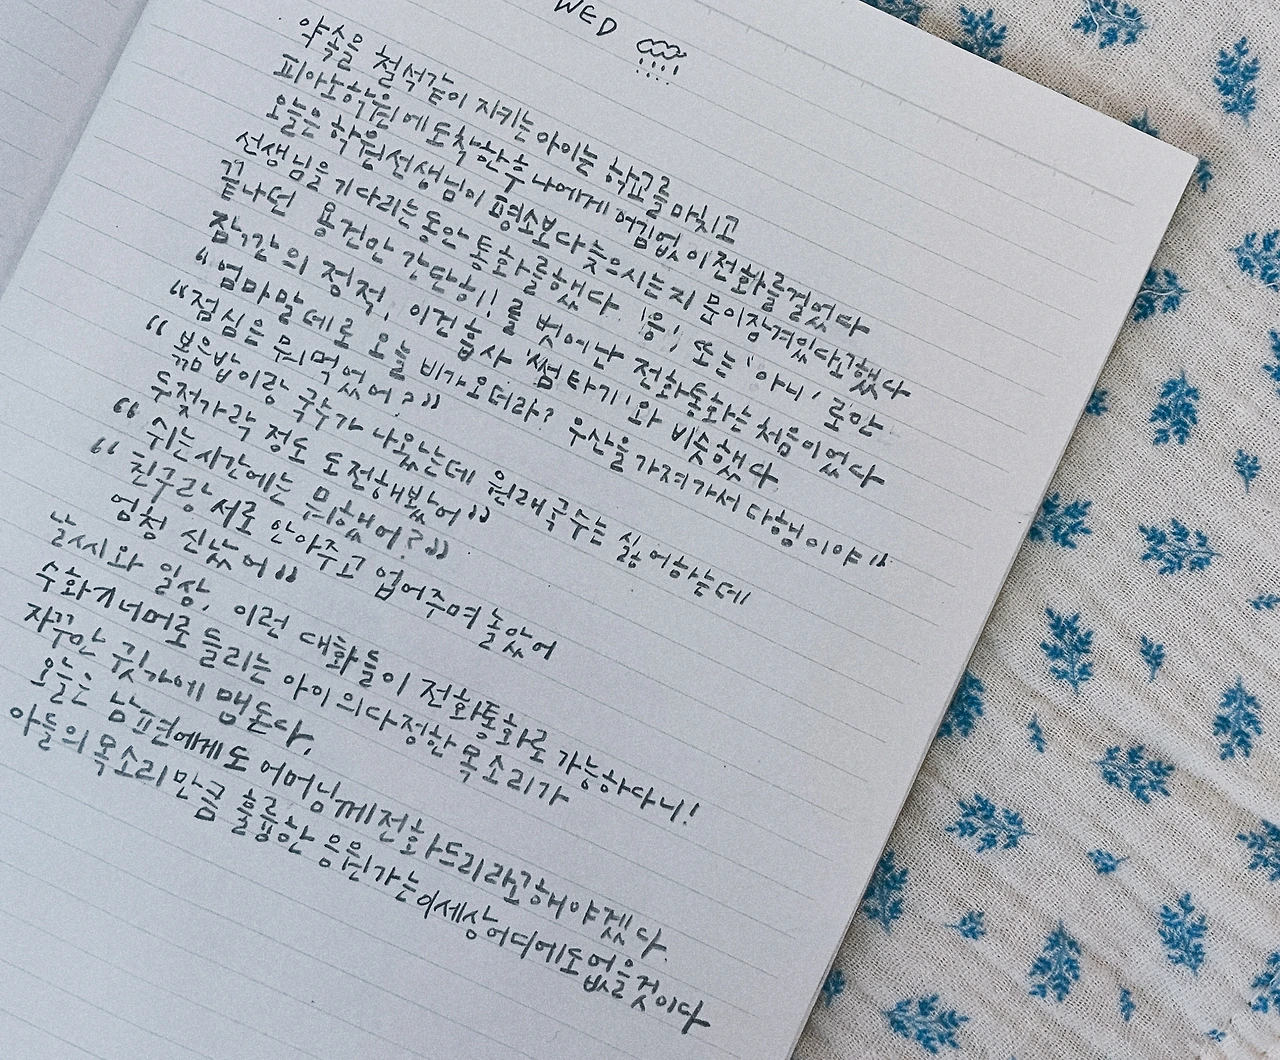 WED
약속을 철석같이 지키는 아이는 학교를 마치고
피아노학원에 도착한후 나에게 어김없이 전화를 걸었다
오늘은 학원선생님이 평소보다 늦으시는지 문이 잠겨있다고했다
선생님을 기다리는동안 통화를했다. '응' 또는 '아니' 로만
끝나던 용건만 간단히!를 벗어난 전화통화는 처음이었다
잠시간의 정적, 이건 흡사 '썸타기'와 비슷했다
"엄마말 데로 오늘 비가오더라? 우산을 가져가서 다행이야"
"점심은 뭐먹었어?"
"볶음밥이랑 국수가 나왔는데 원래 국수는 싫어하는데
두젓가락 정도 도전해봤어"
"쉬는시간에는 뭐했어?"
"친구랑 서로 안아주고 업어주며 놀았어
엄청 신났어"
날씨와 일상, 이런 대화들이 전화통화로 가능하다니!
수화기너머로 들리는 아이의 다정한 목소리가
자꾸만 귓가에 맴돈다.
오늘은 남편에게도 어머님께 전화드리라고해야겠다.
아들의 목소리만큼 훌륭한 응원가는 이세상 어디에도 없을것이다